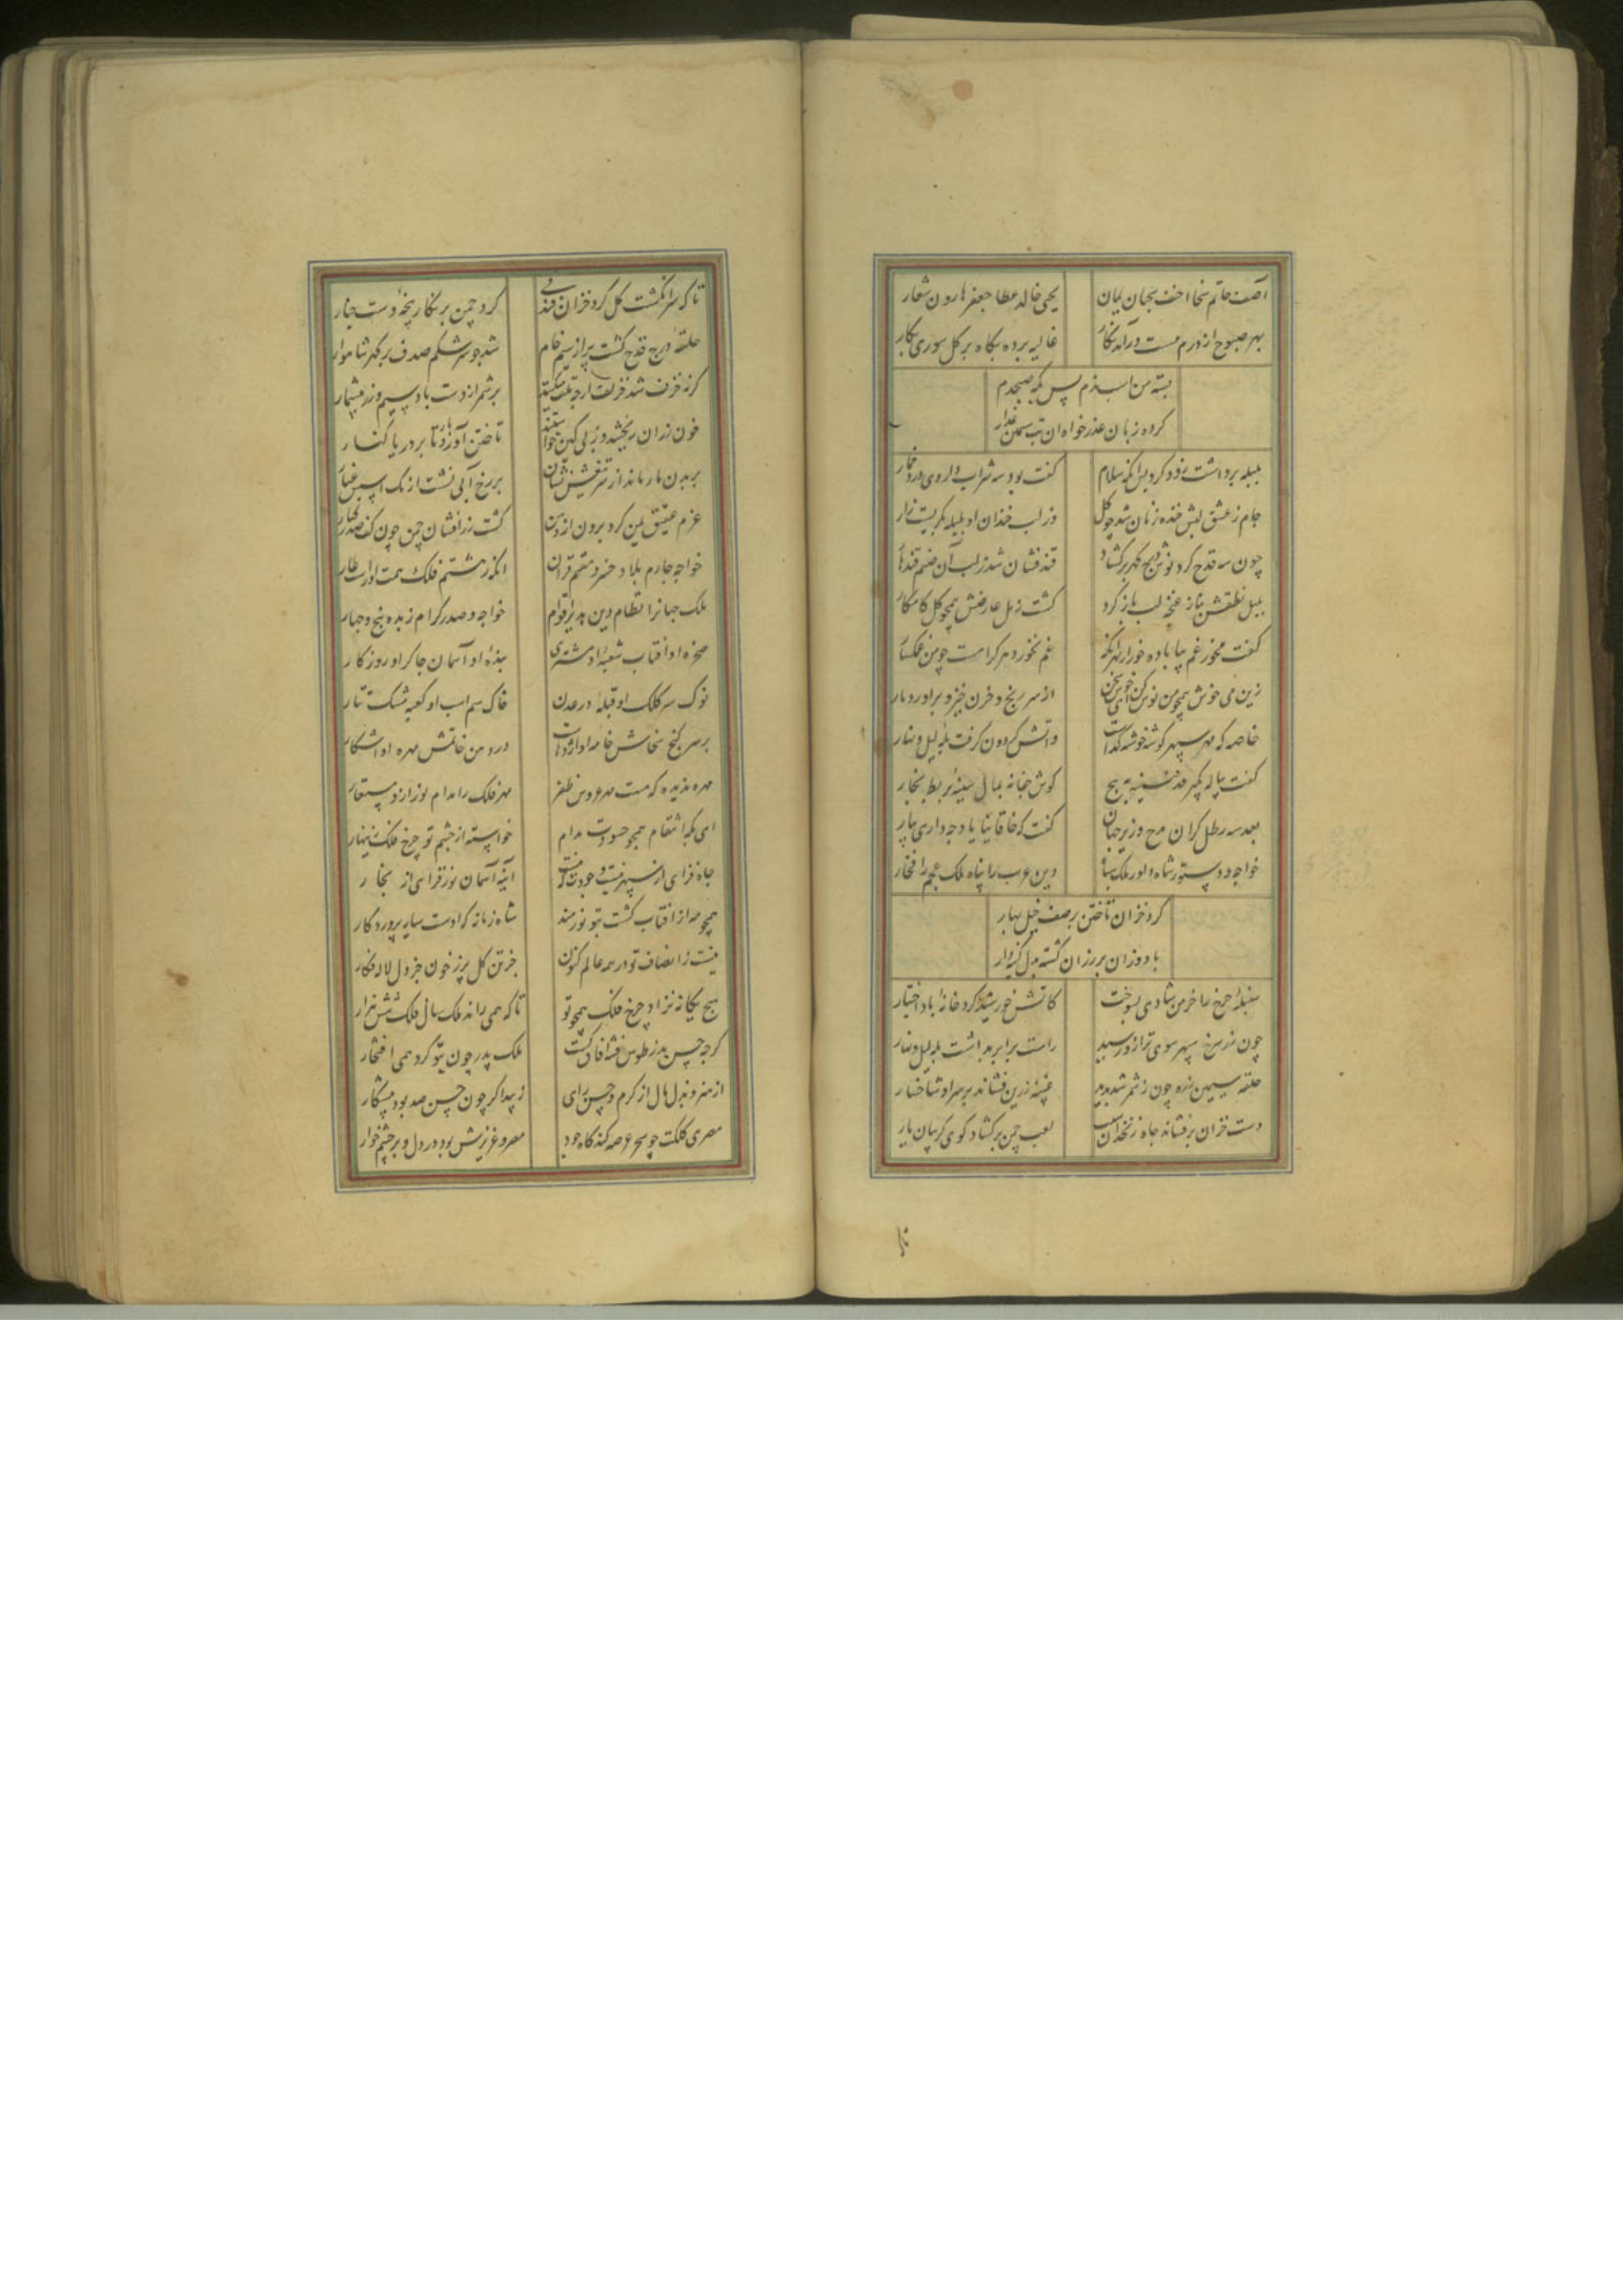 آصف حاتم سخا احنف سحبان بیان
یحیی خالد عطا جعفر هارون شعار
بهر صبوح از درم مست درآمد نگار
غالیه برده بگاه بر گل سوری بکار
بسته من اسب ندم پس بگه صبحدم
کرده زبان عذرخواه ان بت سیمین عذار
بلبله برداشت زود کرد پس آنگه سلام
گفت بود سه شراب داروی درد خمار
جام ز عشق لبش خنده زنان شد چو گل
وز لب خندان او بلبله بگریست زار
چون سه قدح کرد نوش درج گهر برگشاد
قند فشان شد ز لب آن صنم قندهار
بلبل نطقش بناز غنچه لب باز کرد
گشت ز مل عارضش همچو گل کامکار
گفت مخور غم بیا باده خور از بهر آنکه
غم نخورد هر کراست چو من غمگسار
زین می خوش همچو من نوش کن
از سر رنج و حزن خیز و براور دمار
خاصه که مهر سپهر گوشه خوشه گذاشت
واتش گردون گرفت پله لیل و نهار
گفت پیاله بگیر
گوش چغانه بمال سینه بربط بخار
بعد سه رطل گران مدح وزیر جهان
گفت که خاقانیا یاد چه داری بیار
خواجه و دستور شاه داور ملک سپاه
دین عرب را پناه ملک عجم را فخار
کرد خزان تاختن بر صف خیل بهار
باد وزان بر رزان گشته بدل کینه‌دار
سنبله چرخ را خرمن شادی بسوخت
کاتش خورشید کرد خانه باد اختیار
چون زر سرخ سپهر سوی ترازو رسید
راست برابر بداشت پله لیل و نهار
حلقه سیمین زره چون ز شمر شد بدید
غیبه زرین فشاند بر سر او شاخسار
دست خزان برفشاند چاه زنخدان سیب
لعب چمن برگشاد گوی گریبان یار
تا که سرانگشت گل کرد خزان فندقی
کرد چمن پر نگار پنجه دست چنار
حلقه درج قدح گشت پر از سیم خام
شد چو سرشکم صدف پر گهر شاهوار
بر شمر از دست باد سیم و زر بیشمار
خون رزان ریختند وز پی کین خواستند
تاختن آورد تا بر دریا کنار
بر بدن نار ماند از تف تیغش نشان
بر رخ آبی نشست از تک اسبش غبار
عزم عقیق یمن کرد برون از دمن
گشت زرافشان چمن چون کف صدر کبار
خواجه چارم بلاد خسرو هفتم قران
آنکه ز هشتم فلک همت او راست عار
ملک جهانرا نظام دین هدی را قوام
خواجه و صدر کرام زبده پنج و چهار
سخره او افتاب شعبه او مشتری
بنده او آسمان چاکر او روزگار
نوک سر کلک او قبله در عدن
خاک سم اسب او کعبه مشک تتار
بر سر گنج سخاش خامه او اژدهاست
در دهن خاتمش مهره او اشکار
مهره ندیده که هست مهر عروس ظفر
مهر فلک را مدام نور ازو مستعار
ای بگه انتقام همچو حسودت مدام
خواسته از خشم تو چرخ فلک زینهار
جاه فزای از سپهر نیست وجودت که هست
آینه آسمان نورفزای از بخار
همچو مه از افتاب گشت بتو نورمند
شاه زمانه که اوست سایه پروردگار
نیست ز انصاف تو در همه عالم کنون
جز تن گل پر ز خون جز دل لاله فکار
هیچ یگانه نزاد چرخ فلک همچو تو
تا که همی راند ملک سال فلک شش هزار
گر چه حسن بد ز طوس فتنه افاق گشت
ملک پدر چون بتو کرد همی افتخار
از هنر و بذل مال از کرم و حسن رای
زیبد اگر چون حسن صد بودت پیشکار
مصری کلکت چو سحر عرضه کند گاه جود
مصر و عزیزش بود در دل و بر چشم خوار